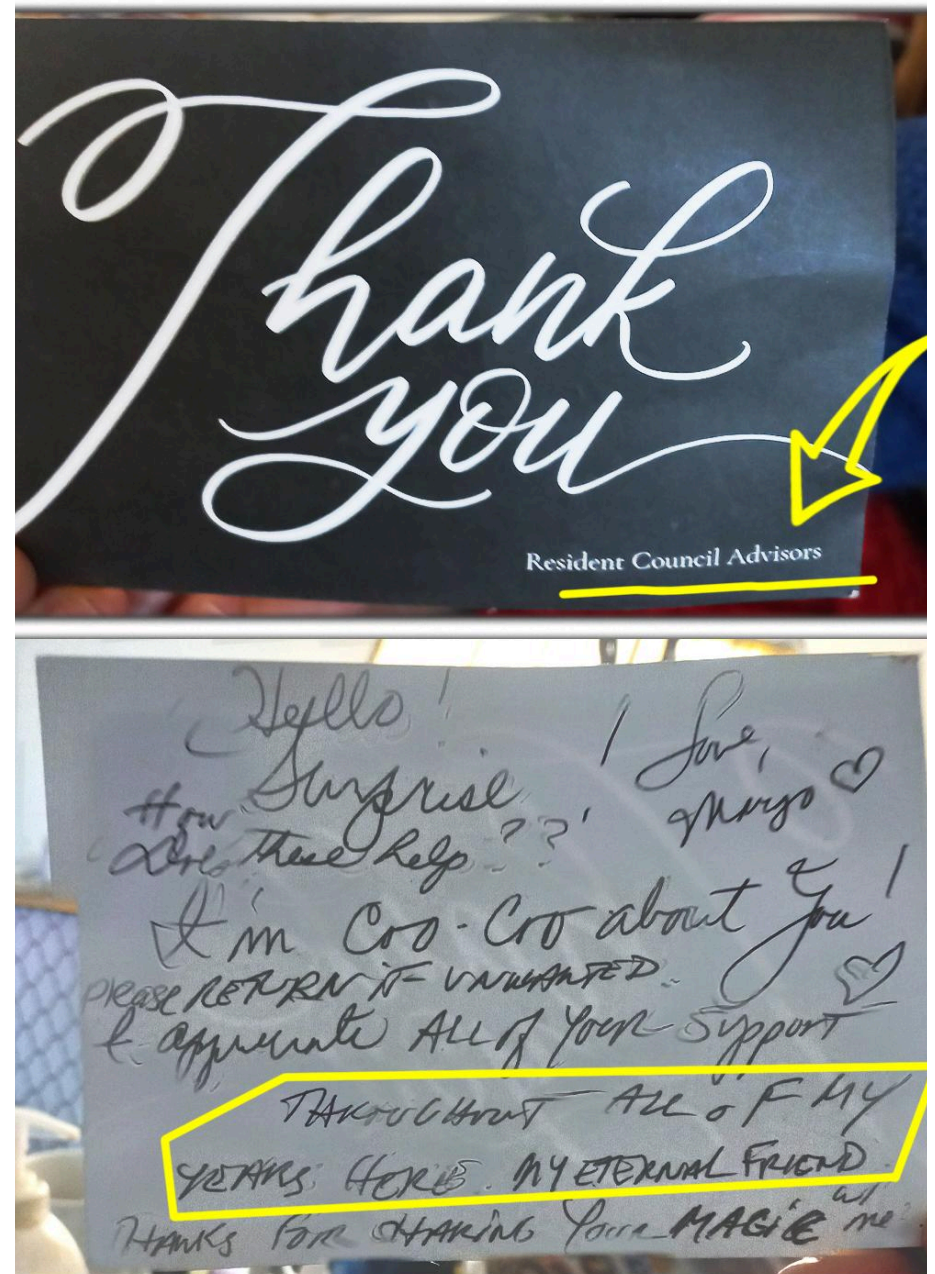 Thank
you
Resident Council Advisors
Hello!
Surprise !
Love,
Margo
How
Does these help??
I'm Coo-Coo about You!
please RETURN IF UNWANTED.
I appreciate ALL of Your Support
THROUGHOUT ALL OF MY
YEARS HERE. MY ETERNAL FRIEND.
THANKS FOR SHARING Your MAGIC w/ me